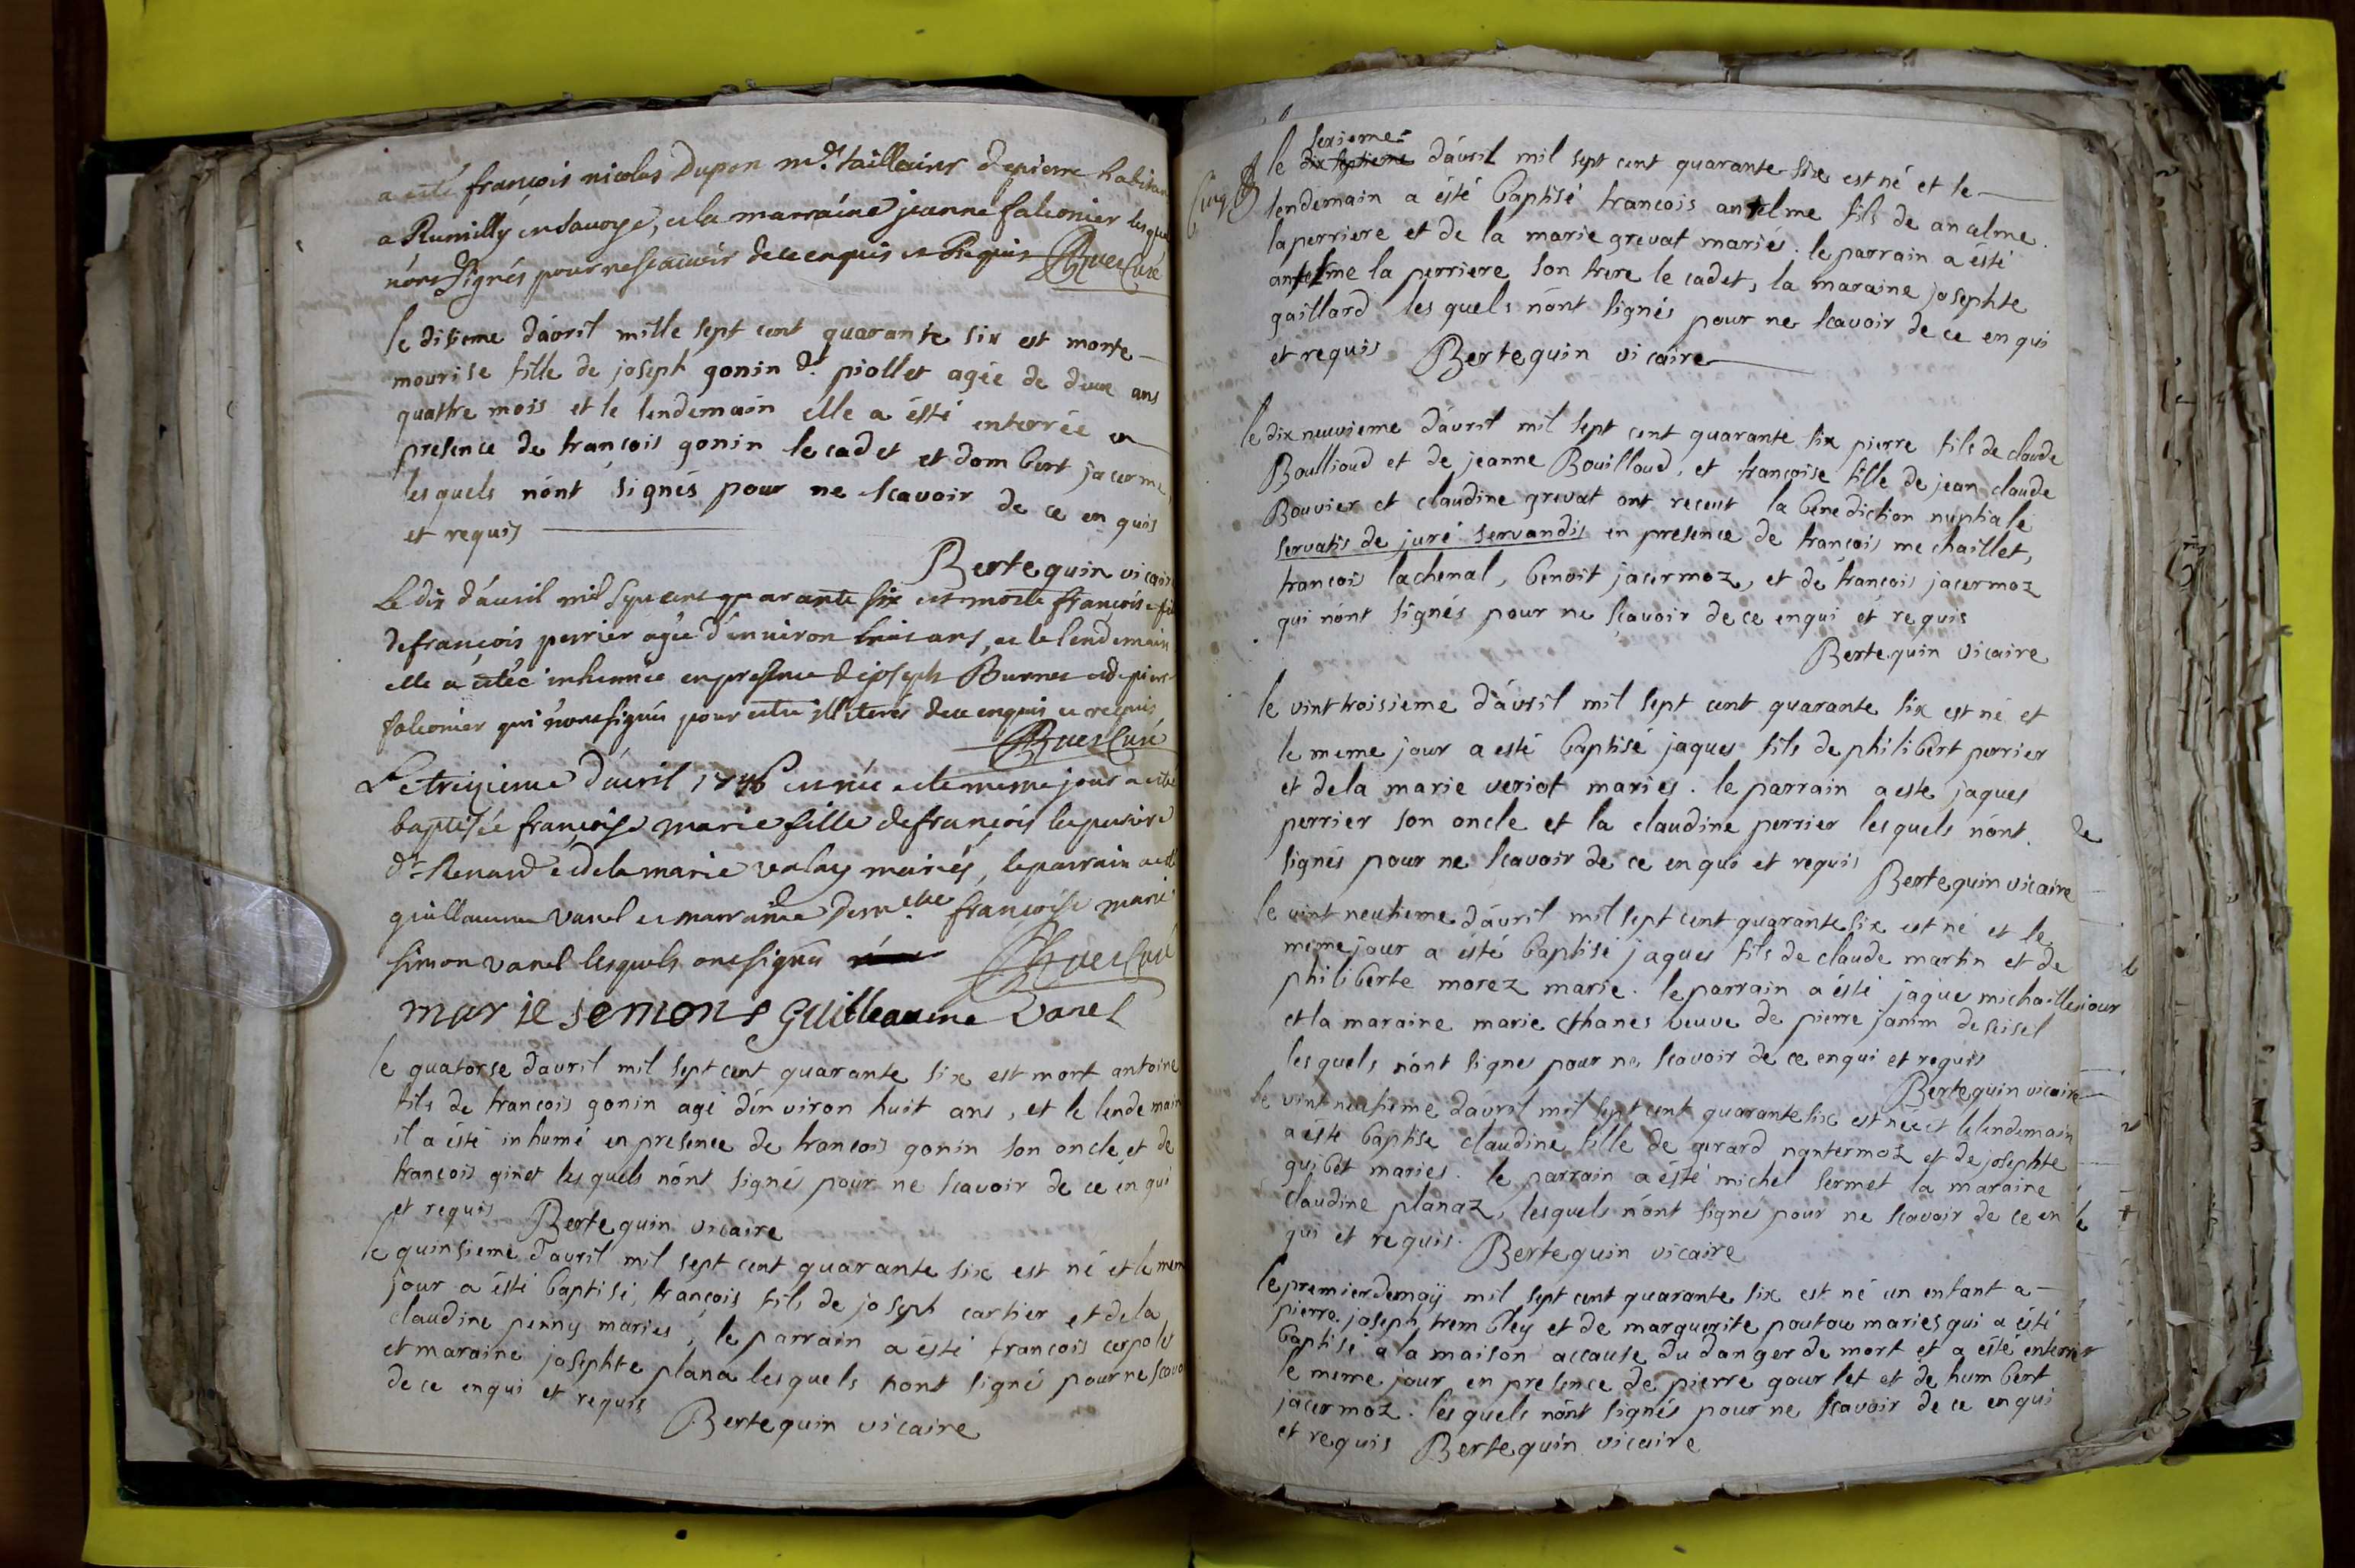 a esté françois nicolas Dupon md. taillieur de pierre habitan
a Rumilly en Savoye, et la marraine jeanne falconier lesque
n'ont signés pour ne scavoir de ce enquis et requis Curé
le disieme d'avril mille sept cent quarante six est morte
mourise fille de joseph gonin dt. piollet agée de deux ans
quattre mois et le lendemain elle a ésté enterrée en
presence de françois gonin le cadet et d'om bert jacerme
les quels n'ont signés pour ne scavoir de ce en quis
et requis
Bertequin vicaire
Le dix d'avril mil sept cent quarante six est morte françoise fil
de françois perrier agée d'environ trois ans, et le lendemain
elle a estée inhumée en presence de joseph Burnet et de pier
falconier qui n'ont signés pour estre illiterés de ce enquis et requis
Curé
Le treizieme d'avril 1746 est née et le meme jour a esté
baptisée françoise marie fille de françois laperrire
dt Renard et de la marie valay mariés, le parrain a esté
guillaume vanel et marraine demelle françoise marie
simon vanel lesquels ont signés Curé
marie semont guilleaume vanel
le quatorse d'avril mil sept cent quarante six est mort antoine
fils de francois gonin agé d'en viron huit ans, et le lendemain
il a ésté inhumé en presence de francois gonin son oncle, et de
francois ginet les quels n'ont signé pour ne scavoir de ce en qui
et requis Bertequin vicaire
le quinsieme d'avril mil sept cent quarante six est né et le mem
jour a ésté baptisé, françois fils de joseph cartier et de la
claudine penny mariés; le parrain a ésté francois cerpolet
et maraine josephte plana les quels n'ont signé pour ne scavo
de ce enqui et requis Bertequin vicaire
sexieme
le dix septieme d'avril mil sept cent quarante six est né et le
lendemain a ésté baptisé francois anselme fils de ancelme
laperriere et de la marie grevat mariés. le parrain a ésté
anselme la perriere son frere le cadet, la maraine josephte
gaillard les quels n'ont signés pour ne scavoir de ce en qui
et requis Bertequin vicaire
le dix neuvieme d'avril mil sept cent quarante six pierre fils de claude
Boullioud et de jeanne Bouilloud, et françoise fille de jean claude
Bouvier et claudine grevat ont receut la benediction nuptiale
servatis de juré servandis en presence de françois me chaillet,
francois lachenal, benoit jacermoz, et de françois jacermoz
qui n'ont signés pour ne scavoir de ce enqui et requis
Bertequin vicaire
le vint troisieme d'avril mil sept cent quarante six est né et
le meme jour a esté baptisé jaques fils de philibert perrier
et de la marie veriot mariés. le parrain a esté jaques
perrier son oncle et la claudine perrier lesquels n'ont
signés pour ne scavoir de ce en qui et requis
Bertequin vicaire
le vint neufieme d'avril mil sept cent quarante six est né et le
meme jour a ésté baptisé jaques fils de claude martin et de
philiberte morez marié. le parrain a ésté jaques michaille
et la maraine marie chanes veuve de pierre janin de seisel
les quels n'ont signes pour ne scavoir de ce enqui et requis
Bertequin vicaire
le vint neufieme d'avril mil sept cent quarante six est née et le lendemain
a ésté baptise claudine fille de gerard nantermoz et de josephte
guibet mariés. le parrain a ésté michel sermet la maraine
claudine planaz, lesquels n'ont signés pour ne scavoir de ce en
qui et requis. Bertequin vicaire
le premier de may mil sept cent quarante six est né un enfant a
pierre joseph trembley et de marguerite poutou mariés qui a ésté
baptisé a la maison accause du danger de mort et a ésté enterrer
le meme jour en presence de pierre gourlet et de humbert
jacermoz. les quels n'ont signés pour ne scavoir de ce enqui
et requis Bertequin vicaire